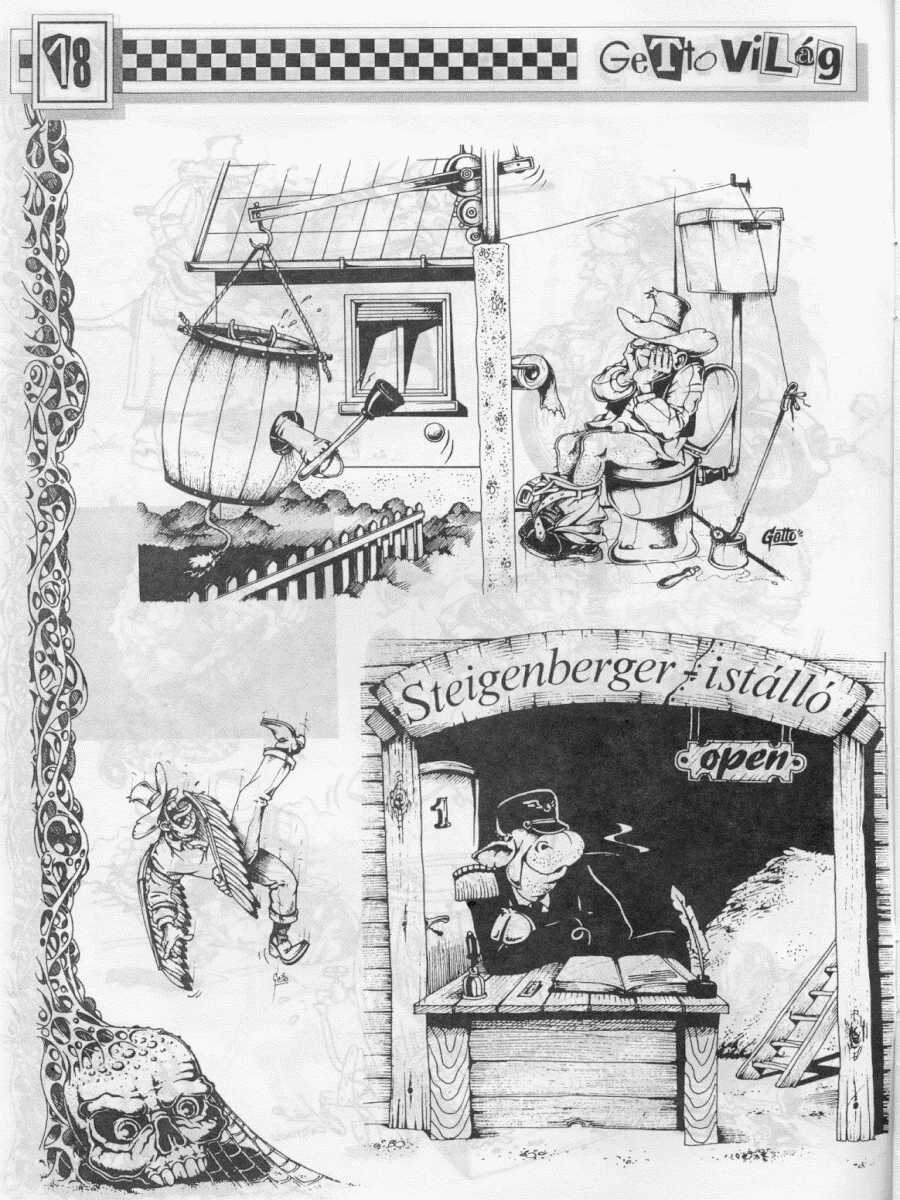 18
GeTtoViLág
Gottó
Steigenberger-istálló
open
1